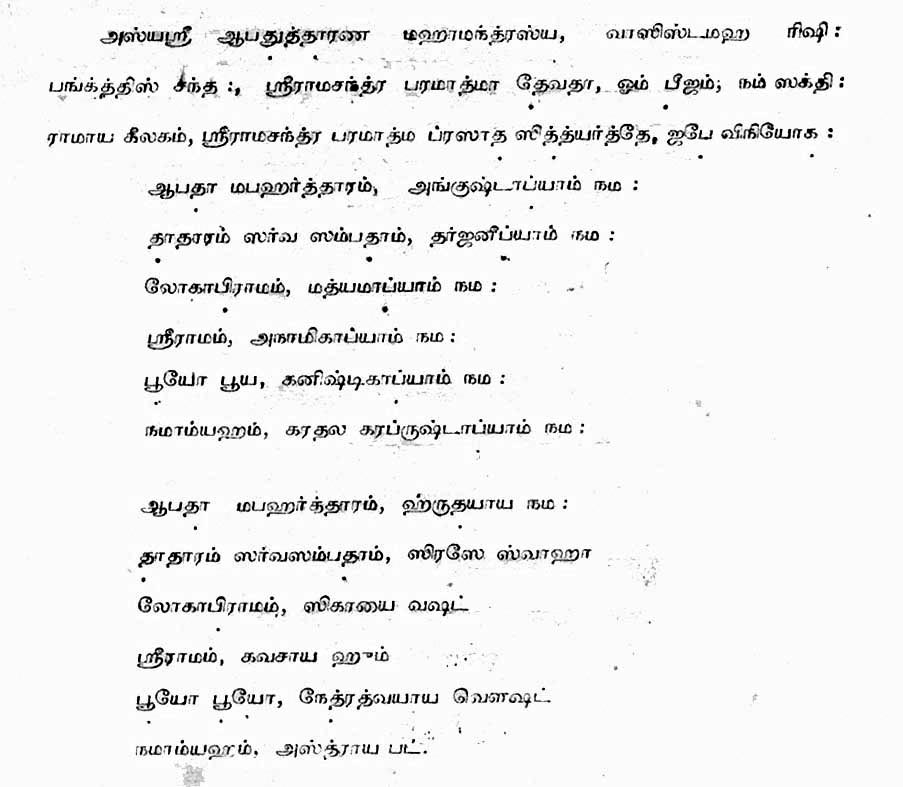 அஸ்யஸ்ரீ ஆபதுத்தாரண மஹாமந்த்ரஸ்ய, வாஸிஸ்டமஹ ரிஷி :
பங்க்த்திஸ் சந்த :, ஸ்ரீராமசந்த்ர பரமாத்மா தேவதா, ஓம் பீஜம்; நம் ஸக்தி :
ராமாய கீலகம், ஸ்ரீராமசந்த்ர பரமாத்ம ப்ரஸாத ஸித்த்யர்த்தே, ஜபே விநியோக :
ஆபதா மபஹர்த்தாரம், அங்குஷ்டாப்யாம் நம :
தாதாரம் ஸர்வ ஸம்பதாம், தர்ஜனீப்யாம் நம :
லோகாபிராமம், மத்யமாப்யாம் நம :
ஸ்ரீராமம், அநாமிகாப்யாம் நம :
பூயோ பூய, கனிஷ்டிகாப்யாம் நம :
நமாம்யஹம், கரதல கரப்ருஷ்டாப்யாம் நம :
ஆபதா மபஹர்த்தாரம், ஹ்ருதயாய நம :
தாதாரம் ஸர்வஸம்பதாம், ஸிரஸே ஸ்வாஹா
லோகாபிராமம், ஸிகாயை வஷட்
ஸ்ரீராமம், கவசாய ஹும்
பூயோ பூயோ, நேத்ரத்வயாய வௌஷட்
நமாம்யஹம், அஸ்த்ராய பட்.